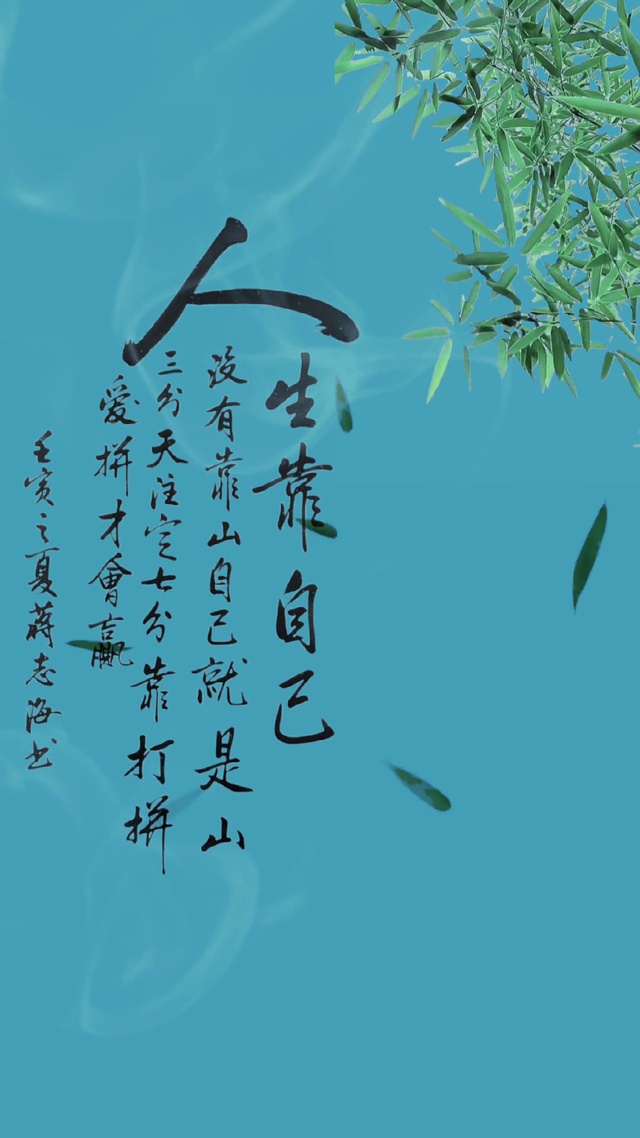 人生靠自己
没有靠山自己就是山
三分天注定七分靠打拼
爱拼才會赢
壬寅之夏蒋志海书